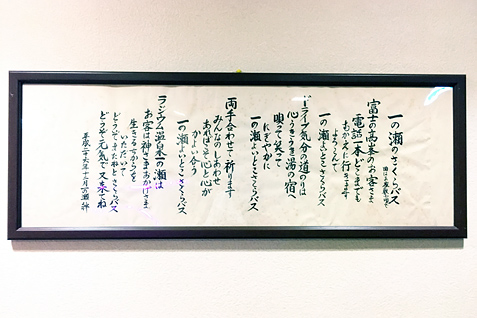 一の瀬のさくらバス
富士の高峯のお客さま
電話一本どこまでも
むかえに行きます
よろこんで
一の瀬よいとこさくらバス
ドライブ気分の道のりは
心うきうき湯の宿へ
唄って笑って
にぎやかに
一の瀬よいとこさくらバス
両手合わせて祈ります
みんなのしあわせ
あればこそ心と心が
かよい合う
一の瀬よいとこさくらバス
ラジウム温泉一の瀬は
お客は神さまおかげさま
いただいて
生きる力を
どうぞまたねとさくらバス
どうぞ元気で又来てね